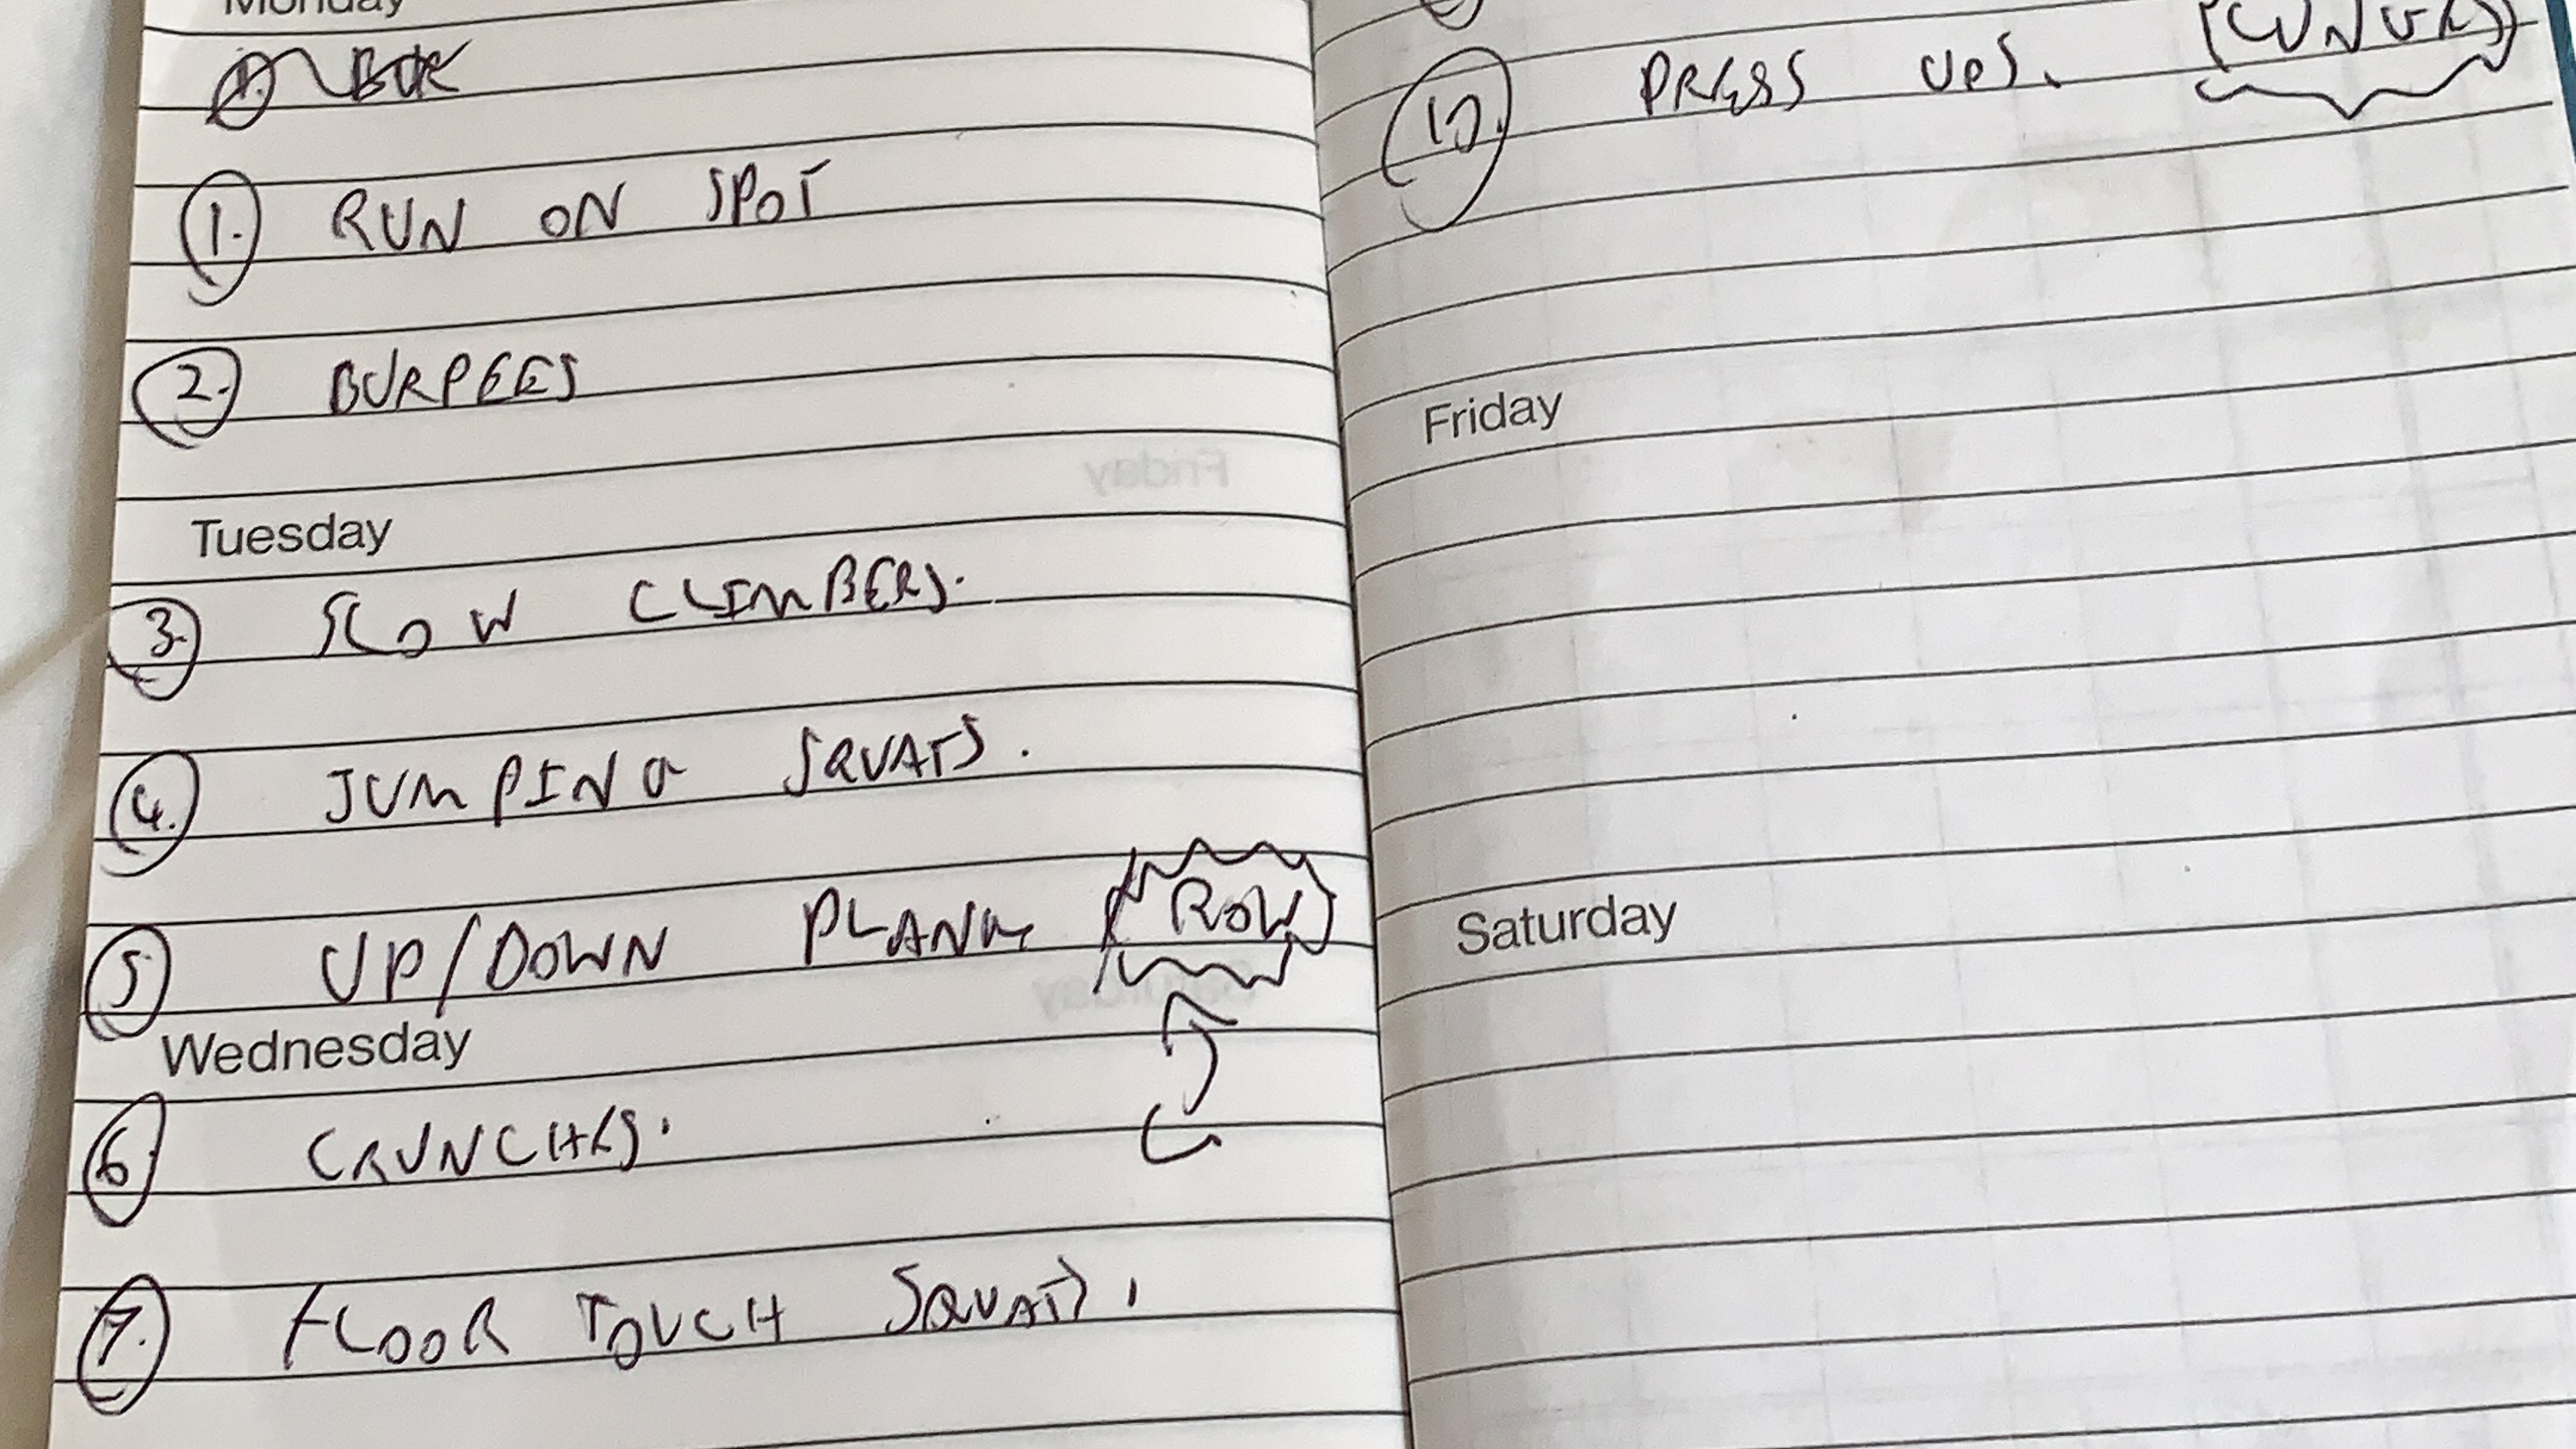 Monday
1. RUN ON SPOT
2. BURPEES
Tuesday
3. SLOW CLIMBERS.
4. JUMPING SQUATS.
5. UP/DOWN PLANK (ROW)
Wednesday
6. CRUNCHES.
7. FLOOR TOUCH SQUATS.
10. PRESS UPS.
Friday
Saturday